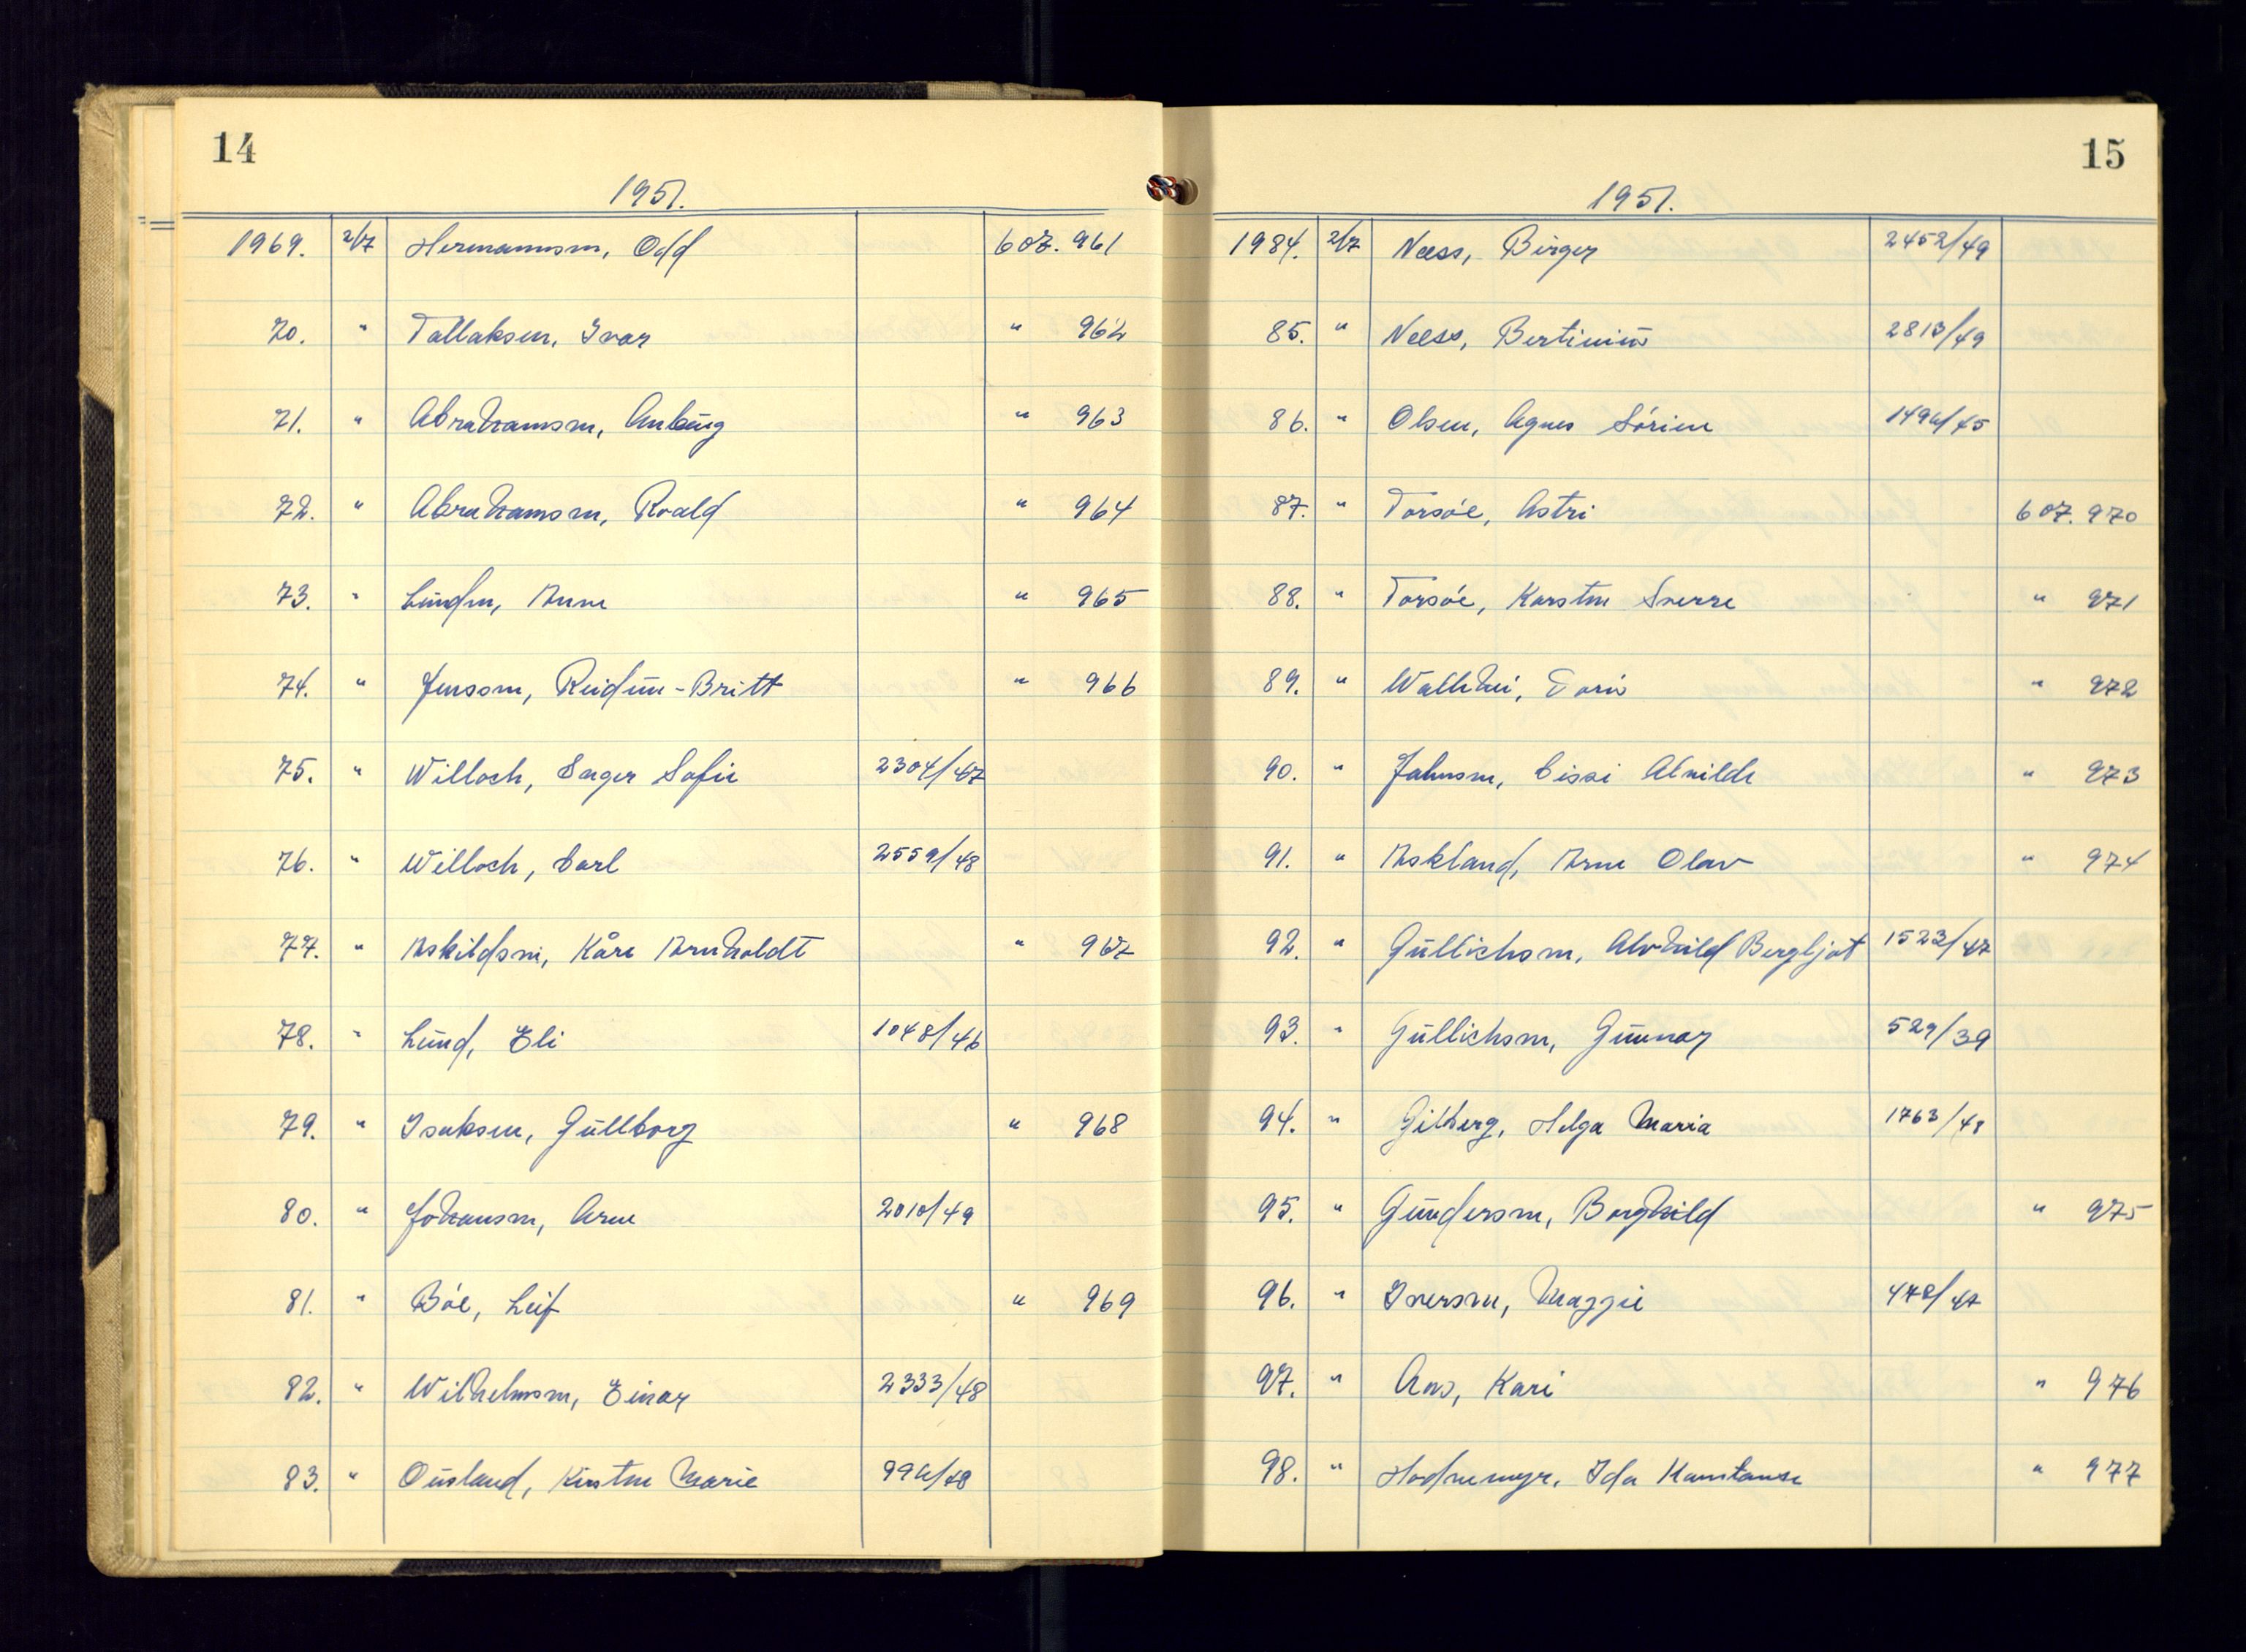 14
1951.
1969. 2/7 Hermansen, Odd 607.961
70. " Tallaksen, Ivar " 962
71. " Abrahamsen, Anbjug " 963
72. " Abrahamsen, Roald " 964
73. " Lunden, Anne " 965
74. " Jenssen, Reidun-Britt " 966
75. " Willoch, Inger Sofie 2304/47
76. " Willoch, Carl 2559/48
77. " Askildsen, Kåre Arnholdt " 967
78. " Lund, Eli 1048/46
79. " Isaksen, Gullborg " 968
80. " Johansen, Arne 2010/49
81. " Bóe, Leif " 969
82. " Wilhelmsen, Einar 2333/48
83. " Ousland, Kirsten Marie 996/48
15
1951.
1984. 2/7 Næss, Birger 2452/49
85. " Næss, Bertinius 2813/49
86. " Olsen, Agnes Sórine 1496/45
87. " Torsóe, Astri 607.970
88. " Torsóe, Karsten Sverre " 971
89. " Wallhei, Doris " 972
90. " Jahnsen, Cissi Alvilde " 973
91. " Askland, Arne Olav " 974
92. " Gullichsen, Alvhild Bergljot 1523/47
93. " Gullichsen, Gunnar 529/39
94. " Gilberg, Helga Maria 1763/48
95. " Gundersen, Borghild " 975
96. " Iversen, Maggie 478/47
97. " Aas, Kari " 976
98. " Hodnemyr, Ida Konstanse " 977